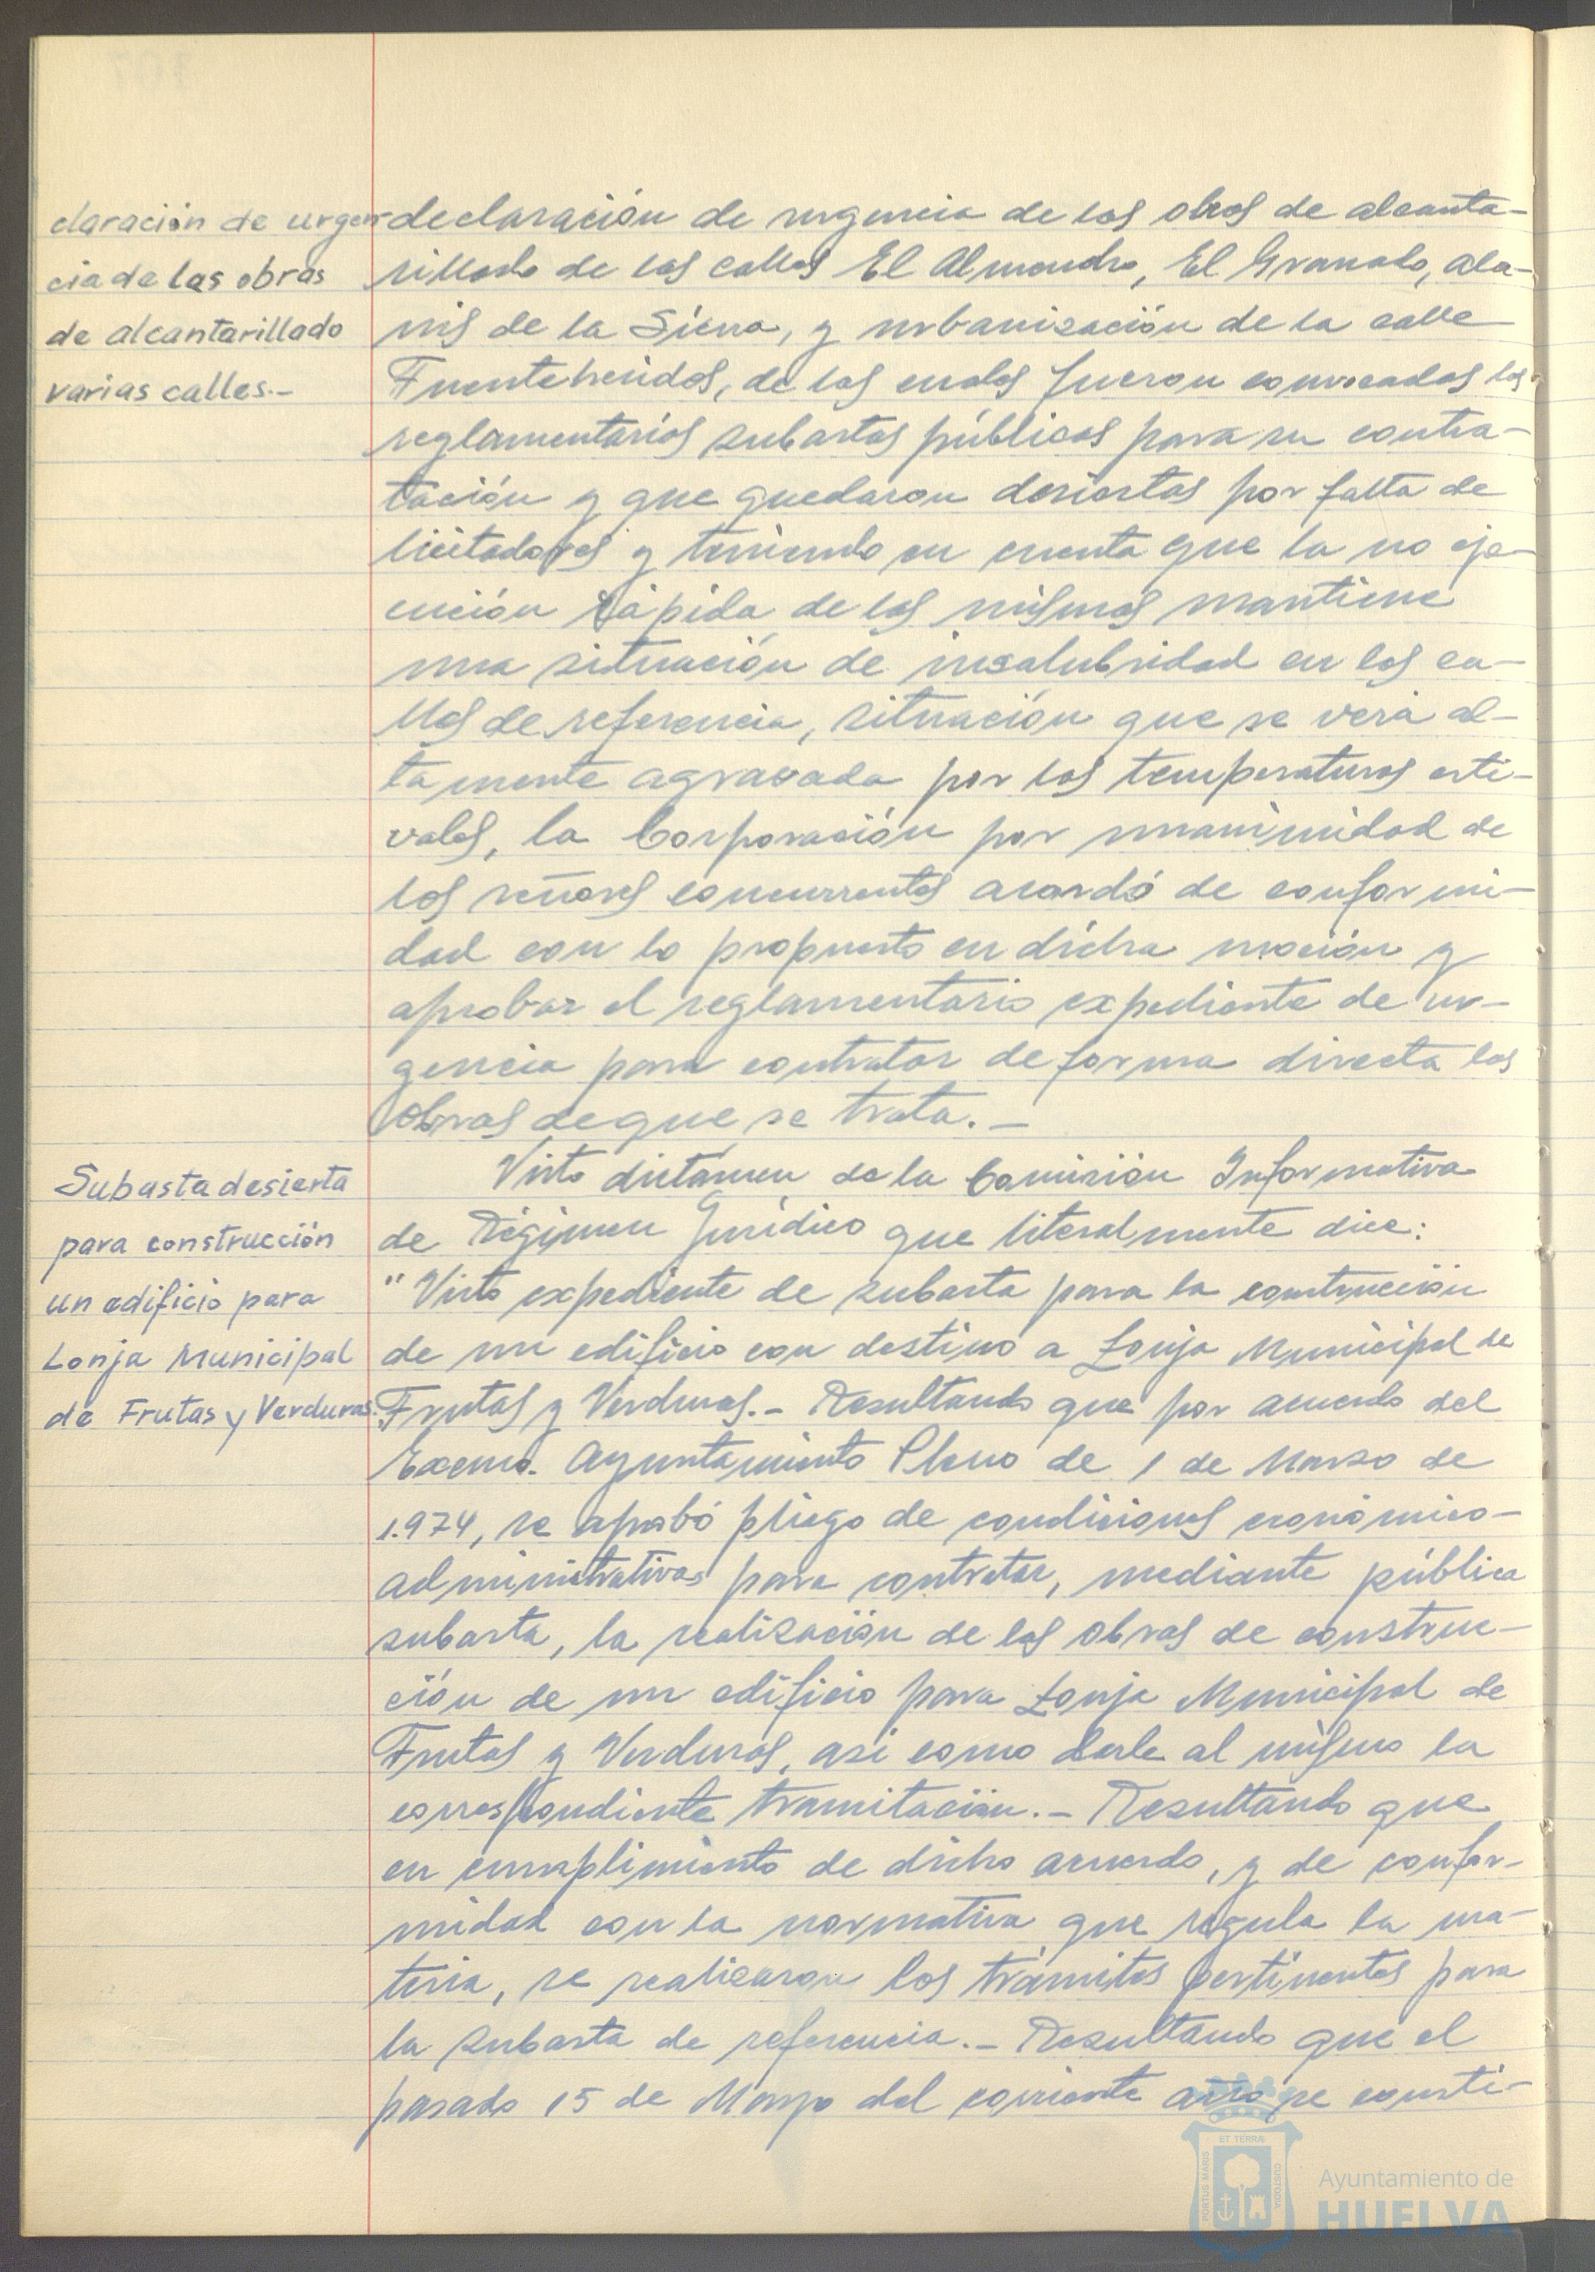 claración de urgen-
cia de las obras
de alcantarillado
varias calles.-
declaración de urgencia de las obras de alcanta-
rillado de las calles El Almendro, El Granado, Ala-
nis de la Sierra, y urbanización de la calle
Fuenteheridos, de las cuales fueron convocadas las
reglamentarias subastas públicas para su contra-
tación y que quedaron desiertas por falta de
licitadores y teniendo en cuenta que la no eje-
cución rápida de las mismas mantiene
una situación de insalubridad en las ca-
lles de referencia, situación que se verá al-
tamente agravada por las temperaturas esti-
vales, la Corporación por unanimidad de
los señores concurrentes acordó de conformi-
dad con lo propuesto en dicha moción y
aprobar el reglamentario expediente de ur-
gencia para contratar de forma directa las
obras de que se trata.-
Subasta desierta
para construcción
un edificio para
Lonja Municipal
de Frutas y Verduras.
Visto dictámen de la Comisión Informativa
de Régimen Jurídico que literalmente dice:
"Visto expediente de subasta para la construcción
de un edificio con destino a Lonja Municipal de
Frutas y Verduras.- Resultando que por acuerdo del
Excmo. Ayuntamiento Pleno de 1 de Marzo de
1.974, se aprobó pliego de condiciones económico-
administrativas para contratar, mediante pública
subasta, la realización de las obras de construc-
ción de un edificio para Lonja Municipal de
Frutas y Verduras, asi como darle al mismo la
correspondiente tramitación.- Resultando que
en cumplimiento de dicho acuerdo, y de confor-
midad con la normativa que regula la ma-
teria, se realizaron los trámites pertinentes para
la subasta de referencia.- Resultando que el
pasado 15 de Mayo del corriente año se consti-
PORTUS MARIS
ET TERRÆ
CUSTODIA
Ayuntamiento de
HUELVA